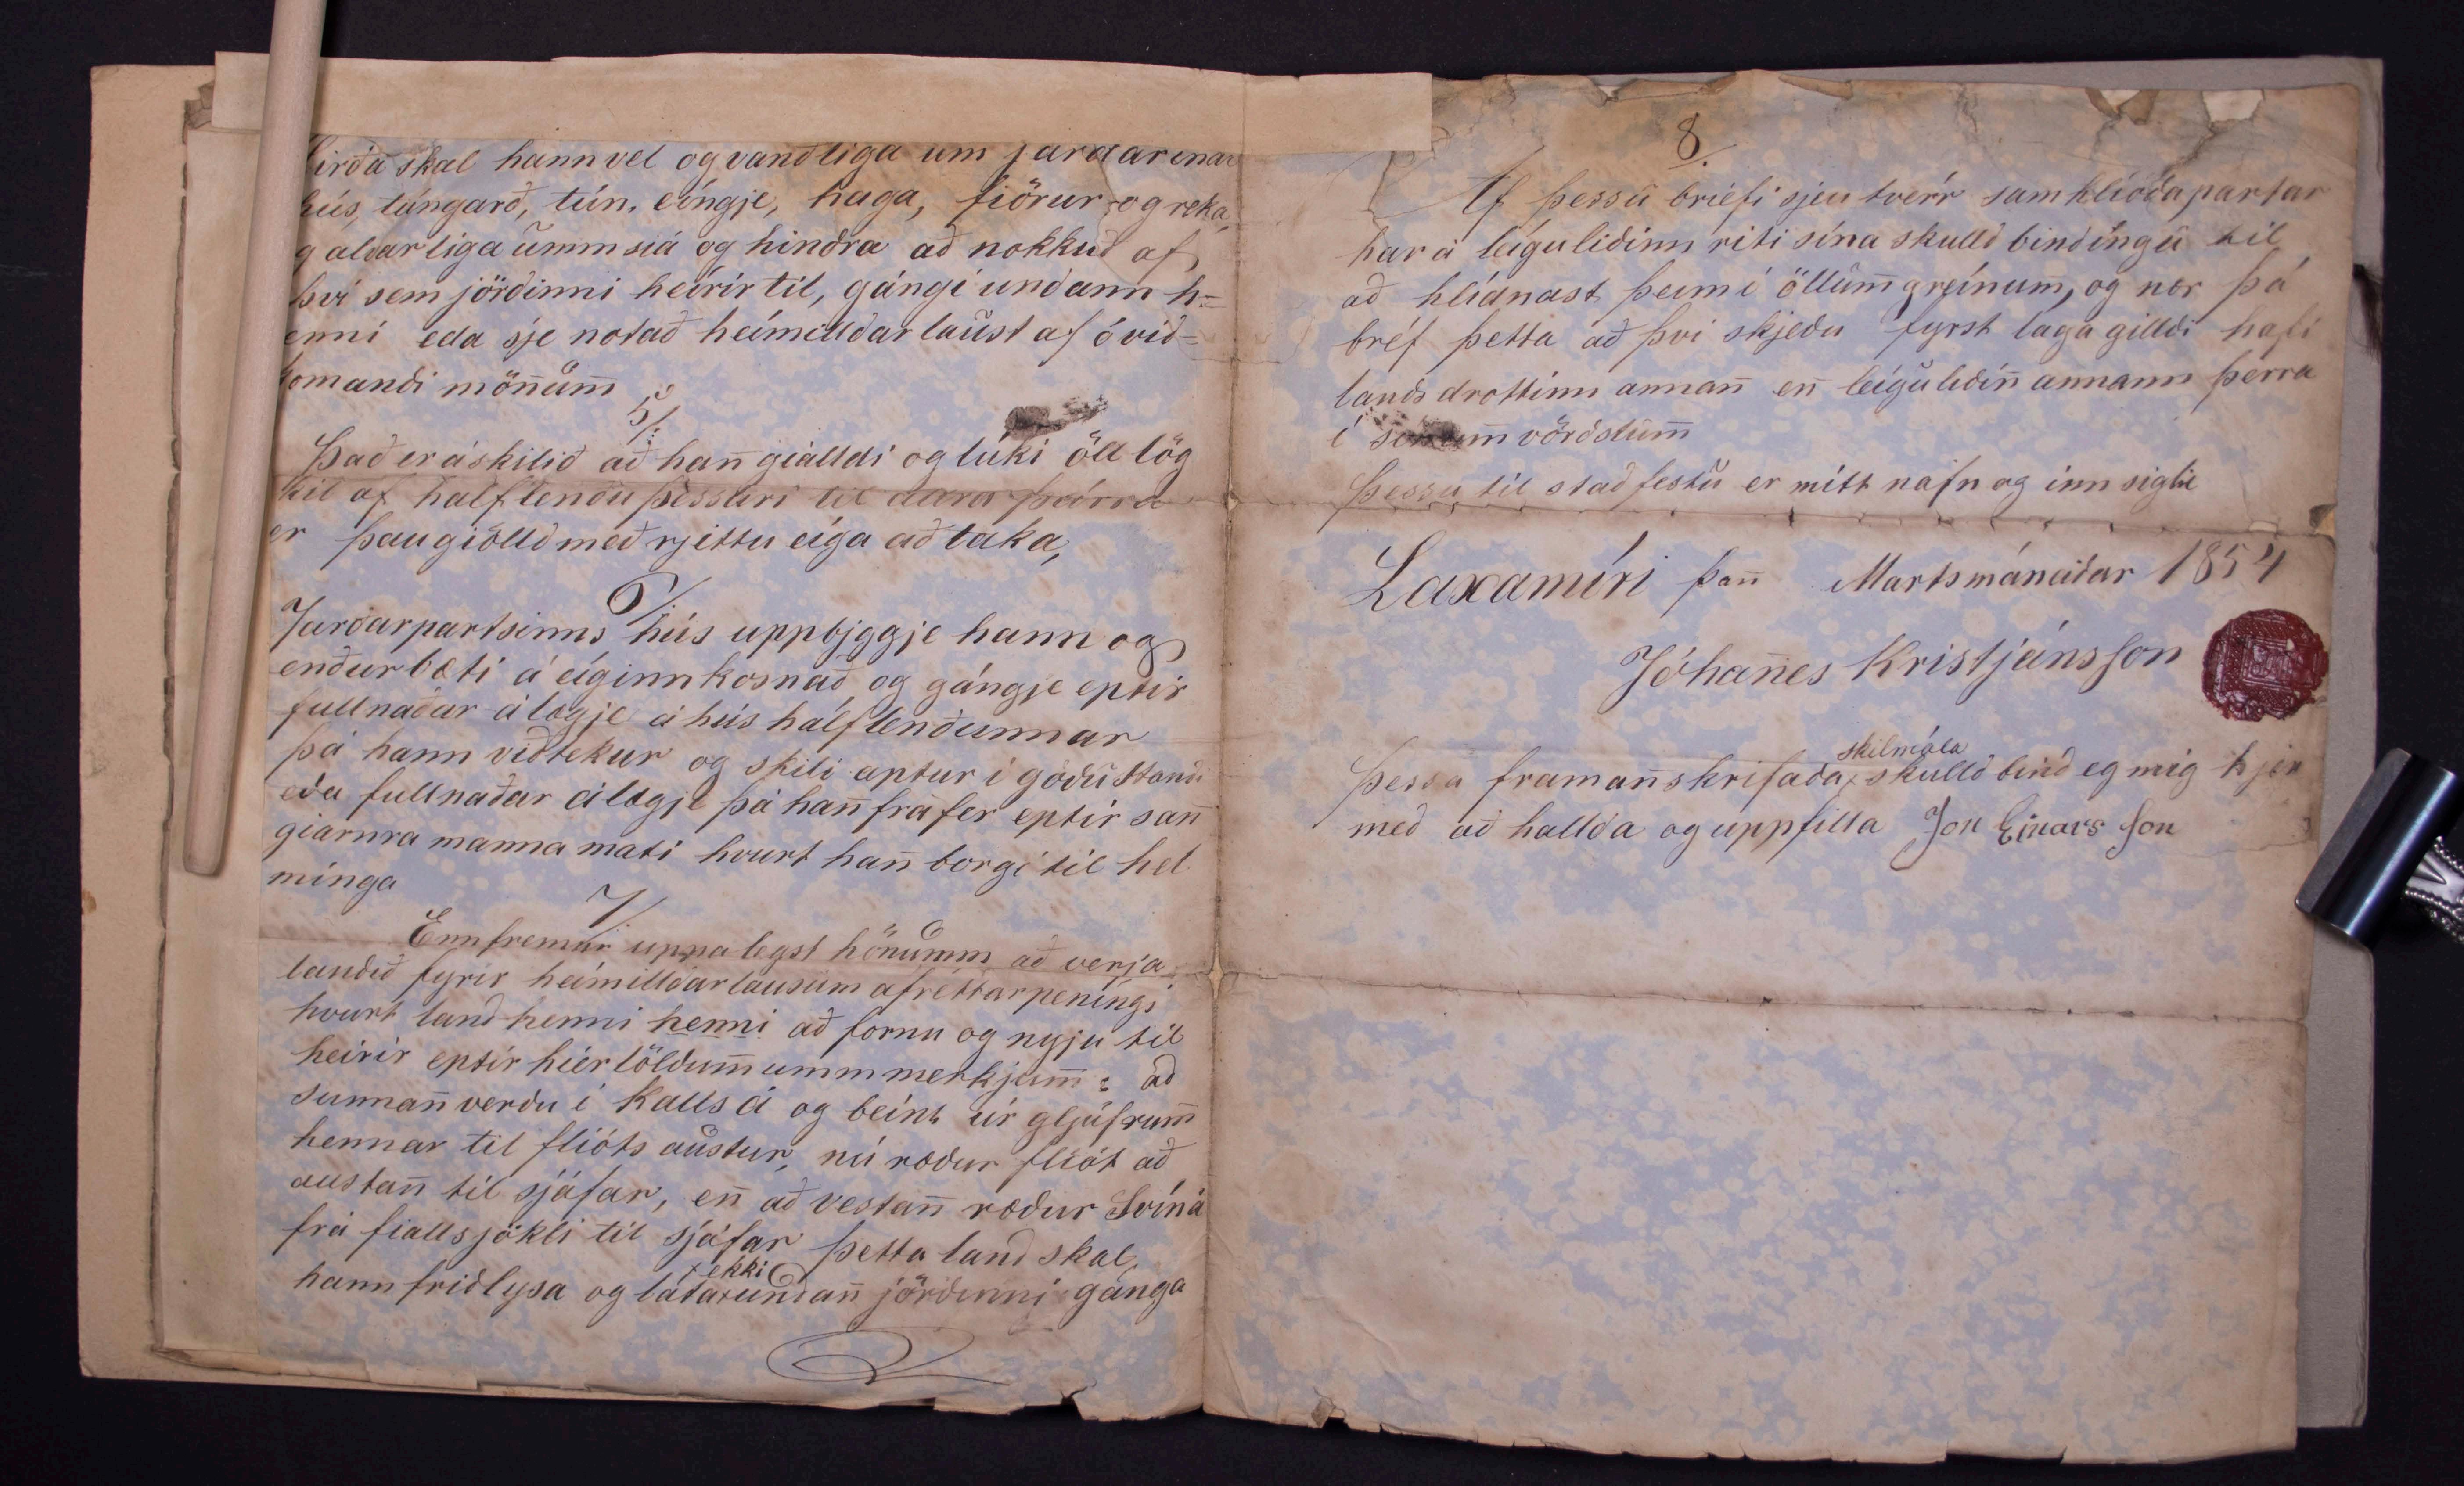 hirða skal hann vel og vandliga um jardarinar
hús, túngarð, tún, eíngje, haga, fiörur og reka,
g aldarliga umm siá og hindra að nokkuð af
því sem jörðinni heírir til, gángi undann h=
enni eda sje notað heímilldarlaust af óvið=
komandi mön̄um̄
5/.
Það er áskilið að han̄ gialldi og lúki öll lög
skil af halflendu þessari til þeirra
er þau giölld með rjettu eíga að taka,
6/.
Jarðarpartsinns hús uppbyggje hann og
endurbæti á eíginn kosnað og gángje eptir
fullnaðar álægje á hús hálflendunnar
þá hann viðtekur og skili aptur í góðu standi
eða fullnaðar álægje þá han̄ fráfer eptir san̄
giarnra manna mati hvurt han̄ borgi til hel
mínga
7/.
Ennfremur uppálegst hönumm að verja
landið fyrir heímilldarlausum afréttarpeníngi
hvurt land henni henni að fornu og nyju til
heirir eptir hiér töldum̄ umm merkjum̄: að
sunnan̄verðu í Kallsá og beínt úr gljúfrum̄
hennar til flióts austur, nú ræður fliót að
austan̄ til sjáfar, en̄ að vestan̄ ræður Svíná
frá fialls jökli til sjáfar þetta land skal,
ekki
hann friðlysa og láta x undan̄ jörðinni gánga
8/.
Af þessu briefi sjeu tveír samhlióða partar
har á leíguliðinn riti sína skulldbindíngu til
að hlíðnast þeim í öllum̄ greínum̄, og nær þá
bréf þetta að því skjeðu fyrst laga gilldi hafi
landsdrottinn annan̄ en̄ leíguliðin̄ annann þeirra
í sönum̄ vörðslum̄
Þessu til staðfestu er mitt nafn og innsigli
Laxamíri þan̄ Martsmánaðar 1854
Jóhan̄es Kristjánsson
skilmála
Þessa framan̄skrifaða x skulld bind eg mig hjer
með að hallda og uppfilla Jon Einarsson